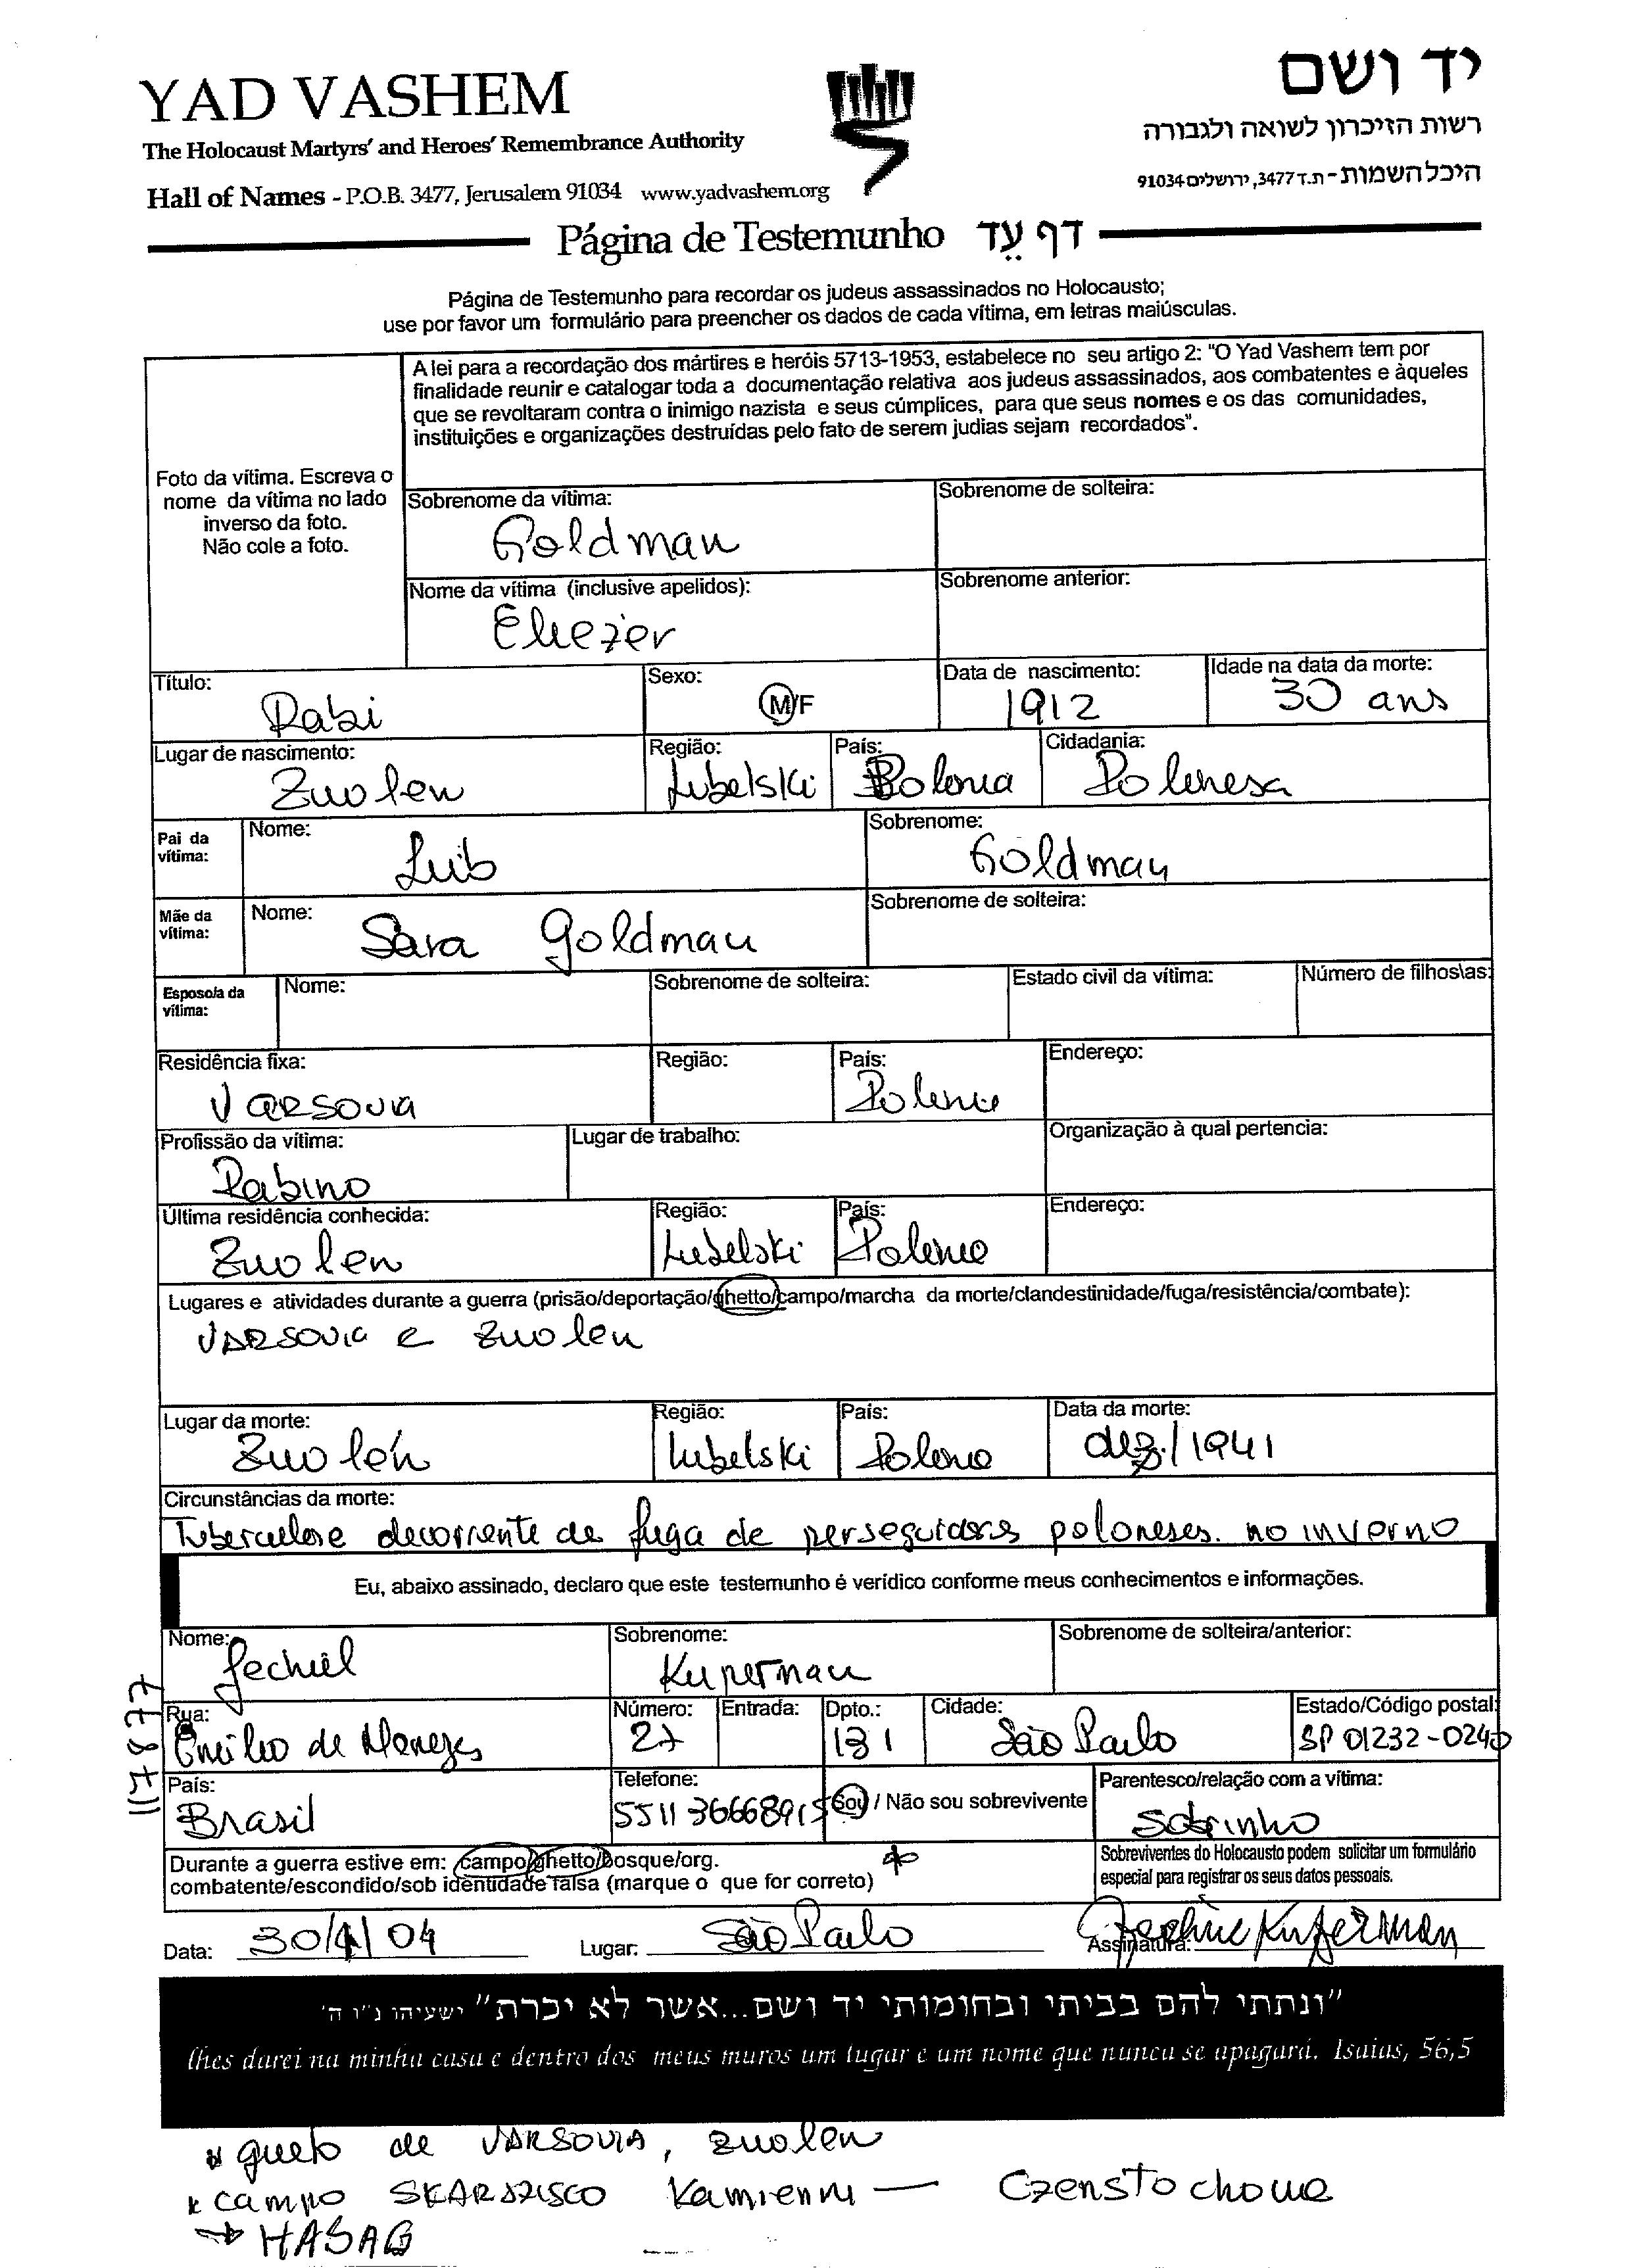 YAD VASHEM
The Holocaust Martyrs' and Heroes' Remembrance Authority
Hall of Names - P.O.B. 3477, Jerusalem 91034 www.yadvashem.org
יד ושם
רשות הזיכרון לשואה ולגבורה
היכל השמות - ת.ד 3477, ירושלים 91034
Página de Testemunho דף עֵד
Página de Testemunho para recordar os judeus assassinados no Holocausto;
use por favor um formulário para preencher os dados de cada vítima, em letras maiúsculas.
A lei para a recordação dos mártires e heróis 5713-1953, estabelece no seu artigo 2: "O Yad Vashem tem por
finalidade reunir e catalogar toda a documentação relativa aos judeus assassinados, aos combatentes e àqueles
que se revoltaram contra o inimigo nazista e seus cúmplices, para que seus nomes e os das comunidades,
instituições e organizações destruídas pelo fato de serem judias sejam recordados".
Foto da vítima. Escreva o
nome da vítima no lado
inverso da foto.
Não cole a foto.
Sobrenome da vítima: Goldman
Sobrenome de solteira:
Nome da vítima (inclusive apelidos): Eliezer
Sobrenome anterior:
Título: Rabi
Sexo: M/F
Data de nascimento: 1912
Idade na data da morte: 30 ans
Lugar de nascimento: Zwolen
Região: Lubelski
País: Polonia
Cidadania: Polonesa
Pai da vítima:
Nome: Leib
Sobrenome: Goldman
Mãe da vítima:
Nome: Sara Goldman
Sobrenome de solteira:
Esposo/a da vítima:
Nome:
Sobrenome de solteira:
Estado civil da vítima:
Número de filhos\as:
Residência fixa: VARSOVIA
Região:
País: Polonia
Endereço:
Profissão da vítima: Rabino
Lugar de trabalho:
Organização à qual pertencia:
Última residência conhecida: Zwolen
Região: Lubelski
País: Polonia
Endereço:
Lugares e atividades durante a guerra (prisão/deportação/ghetto/campo/marcha da morte/clandestinidade/fuga/resistência/combate):
VARSOVIA e Zwolen
Lugar da morte: Zwolen
Região: Lubelski
País: Polonia
Data da morte: dez/1941
Circunstâncias da morte:
Tuberculose decorrente de fuga de perseguidores poloneses. no inverno
Eu, abaixo assinado, declaro que este testemunho é verídico conforme meus conhecimentos e informações.
Nome: Jechiel
Sobrenome: Kuperman
Sobrenome de solteira/anterior:
117877
Rua: Emilio de Menezes
Número: 27
Entrada:
Dpto.: 131
Cidade: São Paulo
Estado/Código postal: SP 01232-0240
País: Brasil
Telefone: 5511 36668915
Sou / Não sou sobrevivente
Parentesco/relação com a vítima: Sobrinho
Durante a guerra estive em: campo/ghetto/bosque/org. *
combatente/escondido/sob identidade falsa (marque o que for correto)
Sobreviventes do Holocausto podem solicitar um formulário
especial para registrar os seus datos pessoais.
Data: 30/4/04
Lugar: São Paulo
Assinatura: Jechiel Kuperman
"ונתתי להם בביתי ובחומותי יד ושם...אשר לא יכרת" ישעיהו נ"ו ה'
lhes darei na minha casa e dentro dos meus muros um lugar e um nome que nunca se apagará. Isaías, 56,5
* gueto de VARSOVIA, Zwolen
* campo SKARDZISCO Kamienni — Czenstochowa
→ HASAG